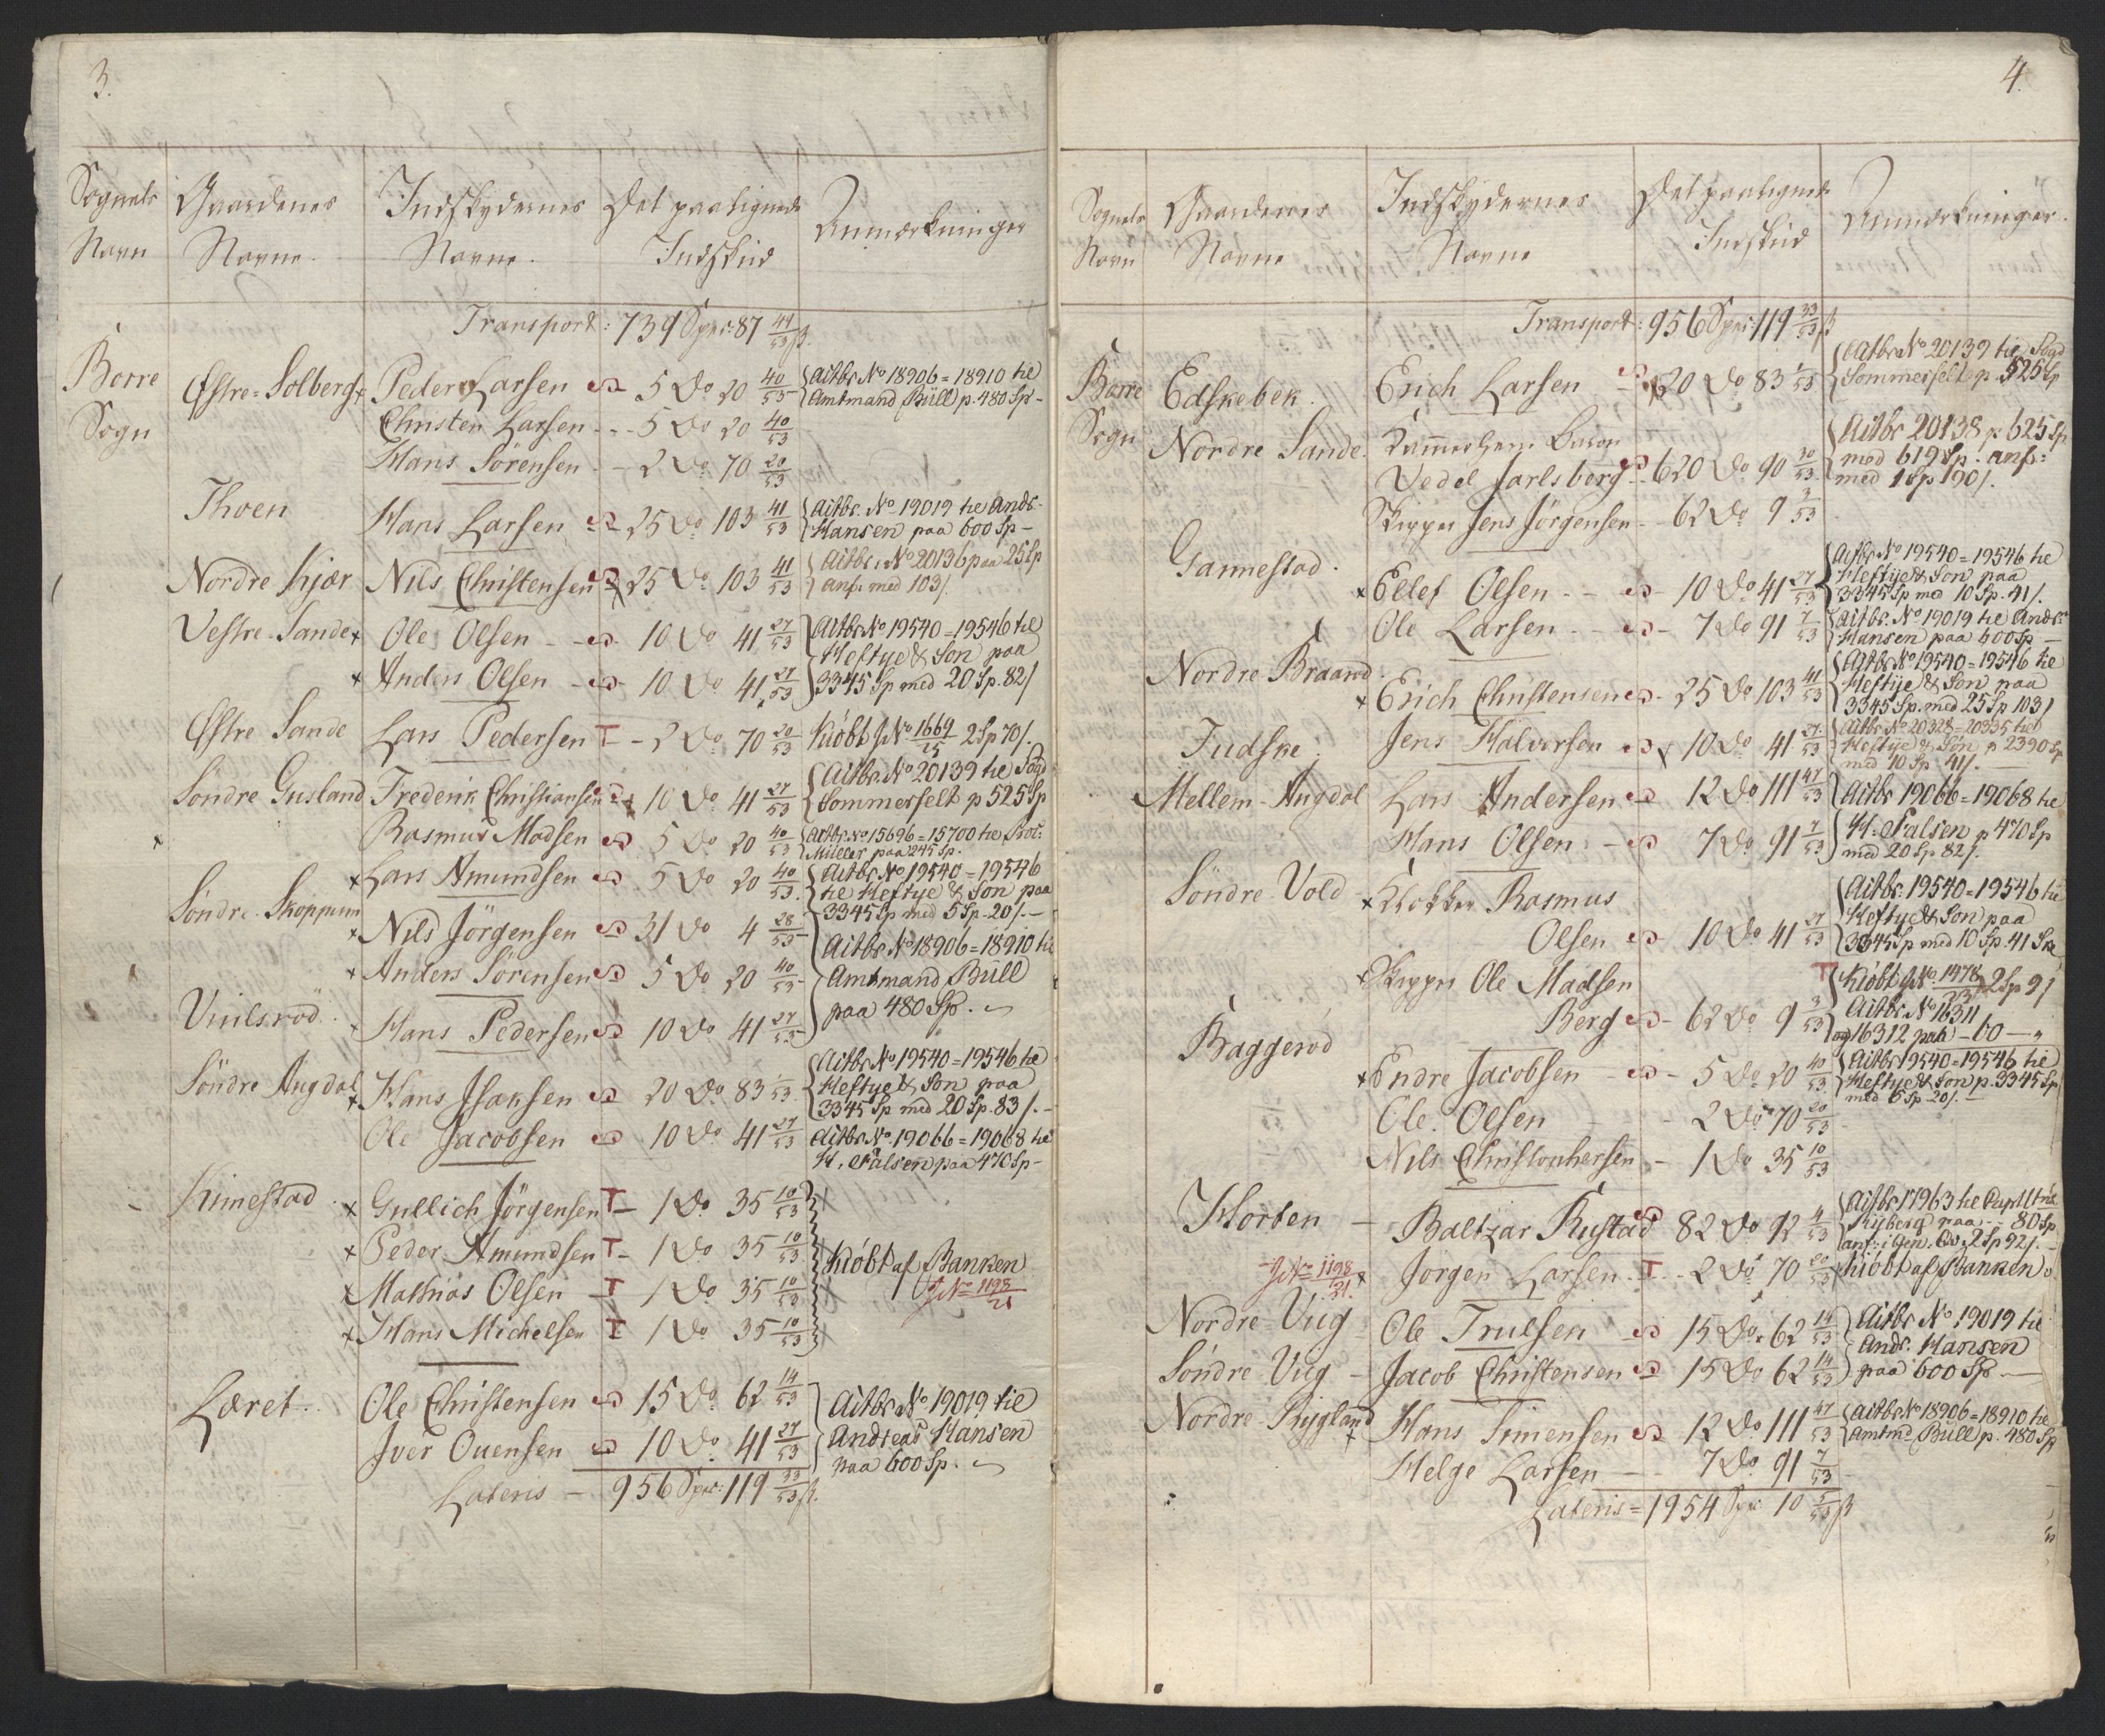 3.
Sognets Navn | Gaardenes Navne. | Indskydernes Navne. | Det paalignede Indskud | Anmærkninger
Transport: 739 Spec: 87 49/53 s.
Borre Sogn
Østre-Solberg x Peder Larsen 5 Do 20 40/53 {Aitbr No 18906=18910 til
Amtmand Bull p. 480 Sp-
Christen Larsen - - 5 Do 20 40/53
Hans Sörensen - 2 Do 70 20/53
Thoen Hans Larsen 25 Do 103 41/53 {Aitbr. No 19019 til Andr.
Hansen paa 600 Sp-
Nordre Kjær Nils Christensen 25 Do 103 41/53 {Aitbr. No 20136 paa 25 Sp
anf. med 103/.
Vestre-Sande x Ole Olsen - 10 Do 41 27/53 {Aitbr No 19540=19546 til
Heftye & Son paa
x Anders Olsen - 10 Do 41 27/53 3345 Sp med 20 Sp. 82/
Østre Sande Lars Pedersen T - 2 Do 70 20/53 Kiöbt J No 1669/25 2 Sp 70/.
Söndre Gusland Frederik Christiansen 10 Do 41 27/53 {Aitbr. No 20139 til Sogd
Sommerfelt p 525 Sp
Rasmus Madsen 5 Do 20 40/53 {Aitbr. No 15696=15700 til Proc:
Müller paa 245 Sp.
x Lars Amundsen 5 Do 20 40/53 {Aitbr No 19540=19546
til Heftye & Son paa
3345 Sp med 5 Sp. 20/.-
Söndre Skoppum x Nils Jörgensen 31 Do 4 28/53
{Aitbr No 18906=18910 til
x Anders Sörensen 5 Do 20 40/53 Amtmand Bull
Hans Pedersen 10 Do 41 27/53 paa 480 Sp.
Söndre Augdal x Hans Isaksen 20 Do 83 1/53 {Aitbr No 19540=19546 til
Heftye & Son paa
3345 Sp med 20 Sp. 83/.-
Ole Jacobsen 10 Do 41 27/53 Aitbr No 19066=19068 til
H. Falsen paa 470 Sp-
Kimestad x Gullich Jörgensen T - 1 Do 35 10/53
x Peder Amundsen T - 1 Do 35 10/53 Kiöbt af Banken
x Mathias Olsen T 1 Do 35 10/53 J No 1198/21
x Hans Michelsen T 1 Do 35 10/53
Læret Ole Christensen 15 Do 62 14/53 Aitbr No 19019 til
Iver Ouensen 10 Do 41 27/53 Andreas Hansen
paa 600 Sp.
Lateris - 956 Spec: 119 33/53 s.
4.
Sognets Navn | Gaardenes Navne | Indskydernes Navne | Det paalignede Indskud | Anmærkninger.
Transport: 956 Spec: 119 33/53 s
Borre Sogn
Edskebek. Erich Larsen 20 Do 83 1/53 {Aitbr No 20139 til Sogd
Sommerfelt p. 525 Sp
Nordre Sande. Kammerherre Baron {Aitbr 20138 p 625 Sp
Vedel Jarlsberg 620 Do 90 30/53 med 619 Sp. anf:
med 1 Sp 190/.
Skipper Jens Jörgensen - - 62 Do 9 3/53
Gannestad. x Ellef Olsen - - 10 Do 41 27/53 {Aitbr No 19540=19546 til
Heftye & Son paa
3345 Sp med 10 Sp. 41/.
Ole Larsen - - 7 Do 91 7/53 {Aitbr. No 19019 til Andr.
Hansen paa 600 Sp-
Nordre Braarød x Erich Christensen 25 Do 103 41/53 {Aitbr No 19540=19546 til
Heftye & Son paa
3345 Sp. med 25 Sp 103/
Judske. Jens Halvorsen 10 Do 41 27/53 {Aitbr No 20328=20335 til
Heftye & Son p 2390 Sp
med 10 Sp 41/.
Mellem-Augdal Lars Andersen 12 Do 111 47/53 {Aitbr 19066=19068 til
Hans Olsen - 7 Do 91 7/53 H. Falsen p 470 Sp
med 20 Sp 82/.
Söndre-Vold x Klokker Rasmus {Aitbr. 19540=19546 til
Heftye & Son paa
Olsen 10 Do 41 27/53 3345 Sp med 10 Sp. 41 Sk
x Skipper Ole Madsen T Kiöbt J No 1478/23 2 Sp 9/
Berg - 62 Do 9 3/53 Aitbr. No 16311
og 16312 paa - 60 -
Baggeröd x Endre Jacobsen - 5 Do 20 40/53 {Aitbr 19540=19546 til
Heftye & Son p. 3345 Sp
med 5 Sp 20/.-
Ole Olsen - 2 Do 70 20/53
Nils Christophersen - 1 Do 35 10/53
Horten - Baltzar Rustad 82 Do 92 4/53 {Aitbr 17963 til Capt
Ryberg paa - 80 Sp
anf: igen. 2 Sp 92/.
J No 1198/21. x Jörgen Larsen T - 2 Do 70 20/53 Kiöbt af Banken
Nordre-Vug Ole Trulsen 15 Do 62 14/53 {Aitbr No 19019 til
Andr. Hansen
Söndre-Vug - Jacob Christensen 15 Do 62 14/53 paa 600 Sp.-
Nordre Rygland x Hans Simensen 12 Do 111 47/53 {Aitbr No 18906=18910 til
Amtmd Bull p. 480 Sp
Helge Larsen - 7 Do 91 7/53
Lateris = 1954 Spec 10 5/53 s